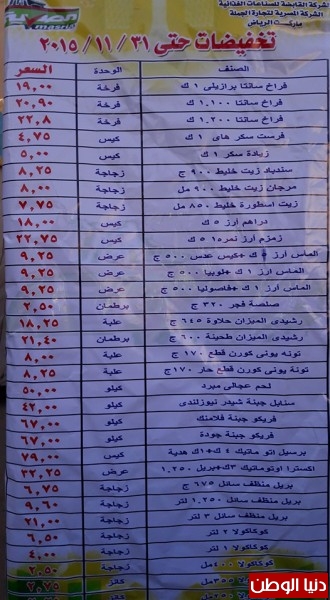 الشركة القابضة للصناعات الغذائية
الشركة المصرية لتجارة الجملة
ماركت الرياض
تخفيضات حتى ٣١ / ١١ / ٢٠١٥
الصنف الوحدة السعر
فراخ سانتا برازيلى ١ ك فرخة ١٩,٠٠
فراخ سانتا ١,١٠٠ ك فرخة ٢٠,٩٠
فراخ سانتا ١,٢٠٠ ك فرخة ٢٢,٨
فرست سكر هاى ١ ك كيس ٤,٧٥
زيادة سكر ١ ك كيس ٥,٠٠
سندباد زيت خليط ٩٠٠ ج زجاجة ٨,٢٥
مرجان زيت خليط ٩٠٠ مل زجاجة ٨,٠٠
زيت اسطورة خليط ٨٥٠ مل زجاجة ٧,٧٥
دراهم ارز ٥ ك كيس ١٨,٠٠
زمزم ارز نمره١ ٥ ك كيس ٢٢,٧٥
الماس ارز ١ ك +كيس عدس ٥٠٠ ج عرض ٩,٢٥
الماس ارز ١ ك +لوبيا ٥٠٠ ج عرض ٩,٢٥
الماس ارز ١ ك +فاصوليا ٥٠٠ ج عرض ٩,٢٥
صلصة فجر ٣٢٠ ج برطمان ٢,٥٠
رشيدى الميزان حلاوة ٦٤٥ ج علبة ١٨,٢٥
رشيدى الميزان طحينة ٦٠٠ ج برطمان ٢١,٤٠
تونه يونى كورن قطع ١٧٠ ج علبة ٨,٠٠
تونه يونى كورن قطع حار ١٧٠ج علبة ٨,٢٥
لحم عجالى مبرد كيلو ٥٠,٠٠
سنابل جبنة شيدر نيوزلندى كيلو ٤٢,٠٠
فريكو جبنة فلامنك كيلو ٦٧,٠٠
فريكو جبنة جودة كيلو ٦٧,٠٠
برسيل اتو ماتيك ٤ ك+١ك هدية كيس ٧٩,٠٠
اكسترا اوتوماتيك ٣ك+بريل ١,٢٥٠ عرض ٣٢,٢٥
بريل منظف سائل ٦٧٥ ج زجاجة ٦,٧٥
بريل منظف سائل ١,٢٥٠ لتر زجاجة ٩,٦٠
بريل منظف سائل ٣ لتر زجاجة ٢١,٠٠
كوكاكولا ٢ لتر زجاجة ٦,٥٠
كوكاكولا ١ لتر زجاجة ٤,٠٠
كوكاكولا ٤٠٠مل زجاجة ٢,٥٠
كانز ٢,٧٥
دنيا الوطن